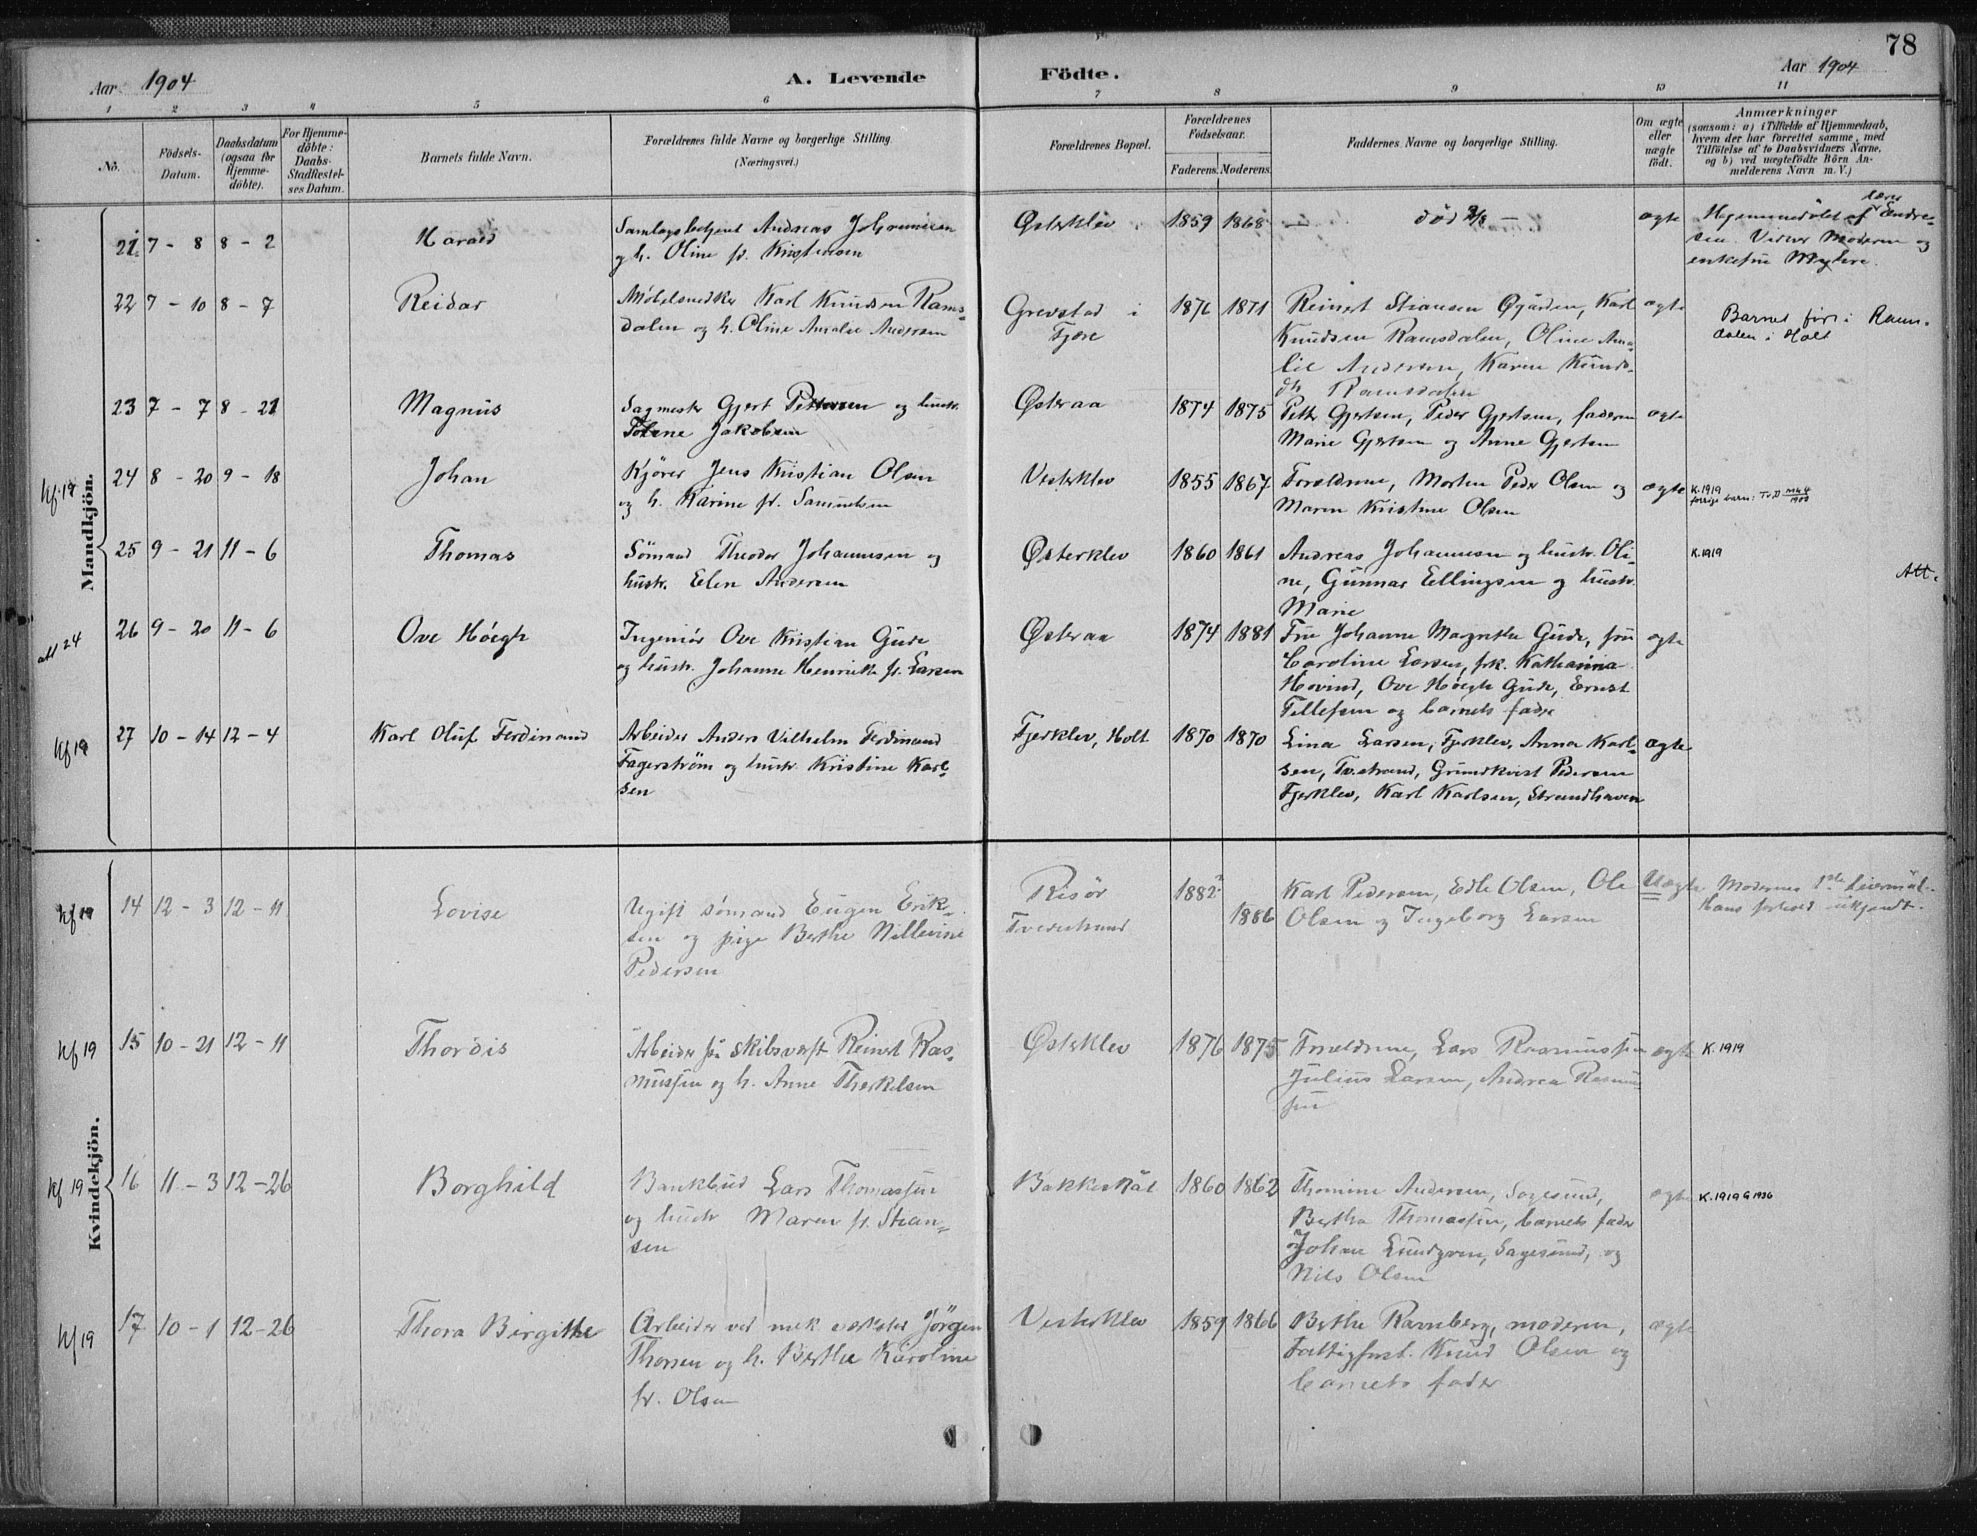 78
Aar 1904
A. Levende
Födte.
Aar 1904
1 2 3 4 5 6 7 8 9 10 11
No.
Födsels-
Datum.
Daabsdatum
(ogsaa for
Hjemme-
döbte).
For Hjemme-
döbte:
Daabs-
Stadfæstel-
ses Datum.
Barnets fulde Navn.
Forældrenes fulde Navne og borgerlige Stilling.
(Næringsvei.)
Forældrenes Bopæl.
Forældrenes
Födselsaar.
Faderens. Moderens.
Faddernes Navne og borgerlige Stilling.
Om ægte
eller
uægte
født.
Anmærkninger
(saasom: a) i Tilfælde af Hjemmedaab,
hvem der har forrettet samme, med
Tilföielse af to Daabsvidners Navne,
og b) ved uægtefödte Börn An-
melderens Navn m. V.)
Mandkjön.
21. 7 - 8 8 - 2
Harald
Samlagsbetjent Andreas Johannesen
og h. Oline f. Kristensen
Østerklev
1859 1868
død
ægte
Hjemmedøbt af lærer Andre-
sen. Vidner Moderen og
22 7 - 10 8 - 7
Reidar
Møbelsnedker Karl Knudsen Rams-
dalen og h. Oline Amalie Andersen
Grevstad i
Fjære
1876 1871
Reinert Stiansen Øgården, Karl
Knudsen Ramsdalen, Oline Ama-
lie Andersen, Karen Knuds-
dtr Ramsdalen
ægte
Barnet født i Rams-
dalen i Holt
23 7 - 7 8 - 21
Magnus
Sagmester Gjert Pettersen og hustr.
Tolene Jakobsen
Østeraa
1874 1875
Petter Gjertsen, Peder Gjertsen, faderen
Marie Gjertsen og Anne Gjertsen
ægte
kf 19
24 8 - 20 9 - 18
Johan
Kjører Jens Kristian Olsen
og h. Karine f. Samuelsen
Vesterklev
1855 1867
Forældrene, Morten Peder Olsen og
Maren Kristine Olsen
ægte
K.1919
25 9 - 21 11 - 6
Thomas
Sömand Theodor Johannesen og
hustr. Elen Andersen
Østerklev
1860 1861
Andreas Johannesen og hustr. Oli-
ne, Gunnar Ellingsen og hustr.
Marie
K.1919
Att.
att 24
26 9 - 20 11 - 6
Ove Höegh
Ingeniör Ove Kristian Gude
og hustr. Johanne Henrikke f. Larsen
Østeraa
1874 1881
Fru Johanne Magrethe Gude, fru
Caroline Larsen, frk. Katharina
Hovind, Ove Höegh Gude, Ernst
Tellefsen og barnets fader
ægte
kf 19
27 10 - 14 12 - 4
Karl Oluf Ferdinand
Arbeider Anders Vilhelm Ferdinand
Fagerström og hustr. Kristine Karl-
sen
Fjerklev, Holt
1870 1870
Lina Larsen, Fjerklev, Anna Karl-
sen, Tv.strand, Grundkvist Pedersen
Fjerklev, Karl Karlsen, Strandhaven
ægte
Kvindekjön.
kf 19
14 12 - 3 12 - 11
Lovise
Ugift sömand Eugen Erik-
sen og pige Berthe Nillevine
Pedersen
Risör
Tvedestrand
1882
1886
Karl Pedersen, Edle Olsen, Ole
Olsen og Ingeborg Larsen
Uægte
Modernes 1ste leiermål.
Hans forhold ukjendt.
kf 19
15 10 - 21 12 - 11
Thordis
Arbeider på skibsværft Reinert Ras-
mussen og h. Anne Therkelsen
Østerklev
1876 1875
Forældrene, Lars Rasmussen
Julius Larsen, Andrea Rasmus-
sen
ægte
K.1919
kf 19
16 11 - 3 12 - 26
Borghild
Bankbud Lars Thomassen
og hustr Maren f. Stian-
sen
Bakkeskål
1860 1862
Thomine Andersen, Sagesund,
Bertha Thomassen, barnets fader
Johan Lundgren, Sagesund, og
Nils Olsen
ægte
K.1919 G 1936
kf 19
17 10 - 1 12 - 26
Thora Birgithe
Arbeider ved mek værksted Jörgen
Thorsen og h. Berthe Karoline
f. Olsen
Vesterklev
1859 1866
Berthe Ravnberg, moderen,
Fattigforst. Knud Olsen og
barnets fader
ægte